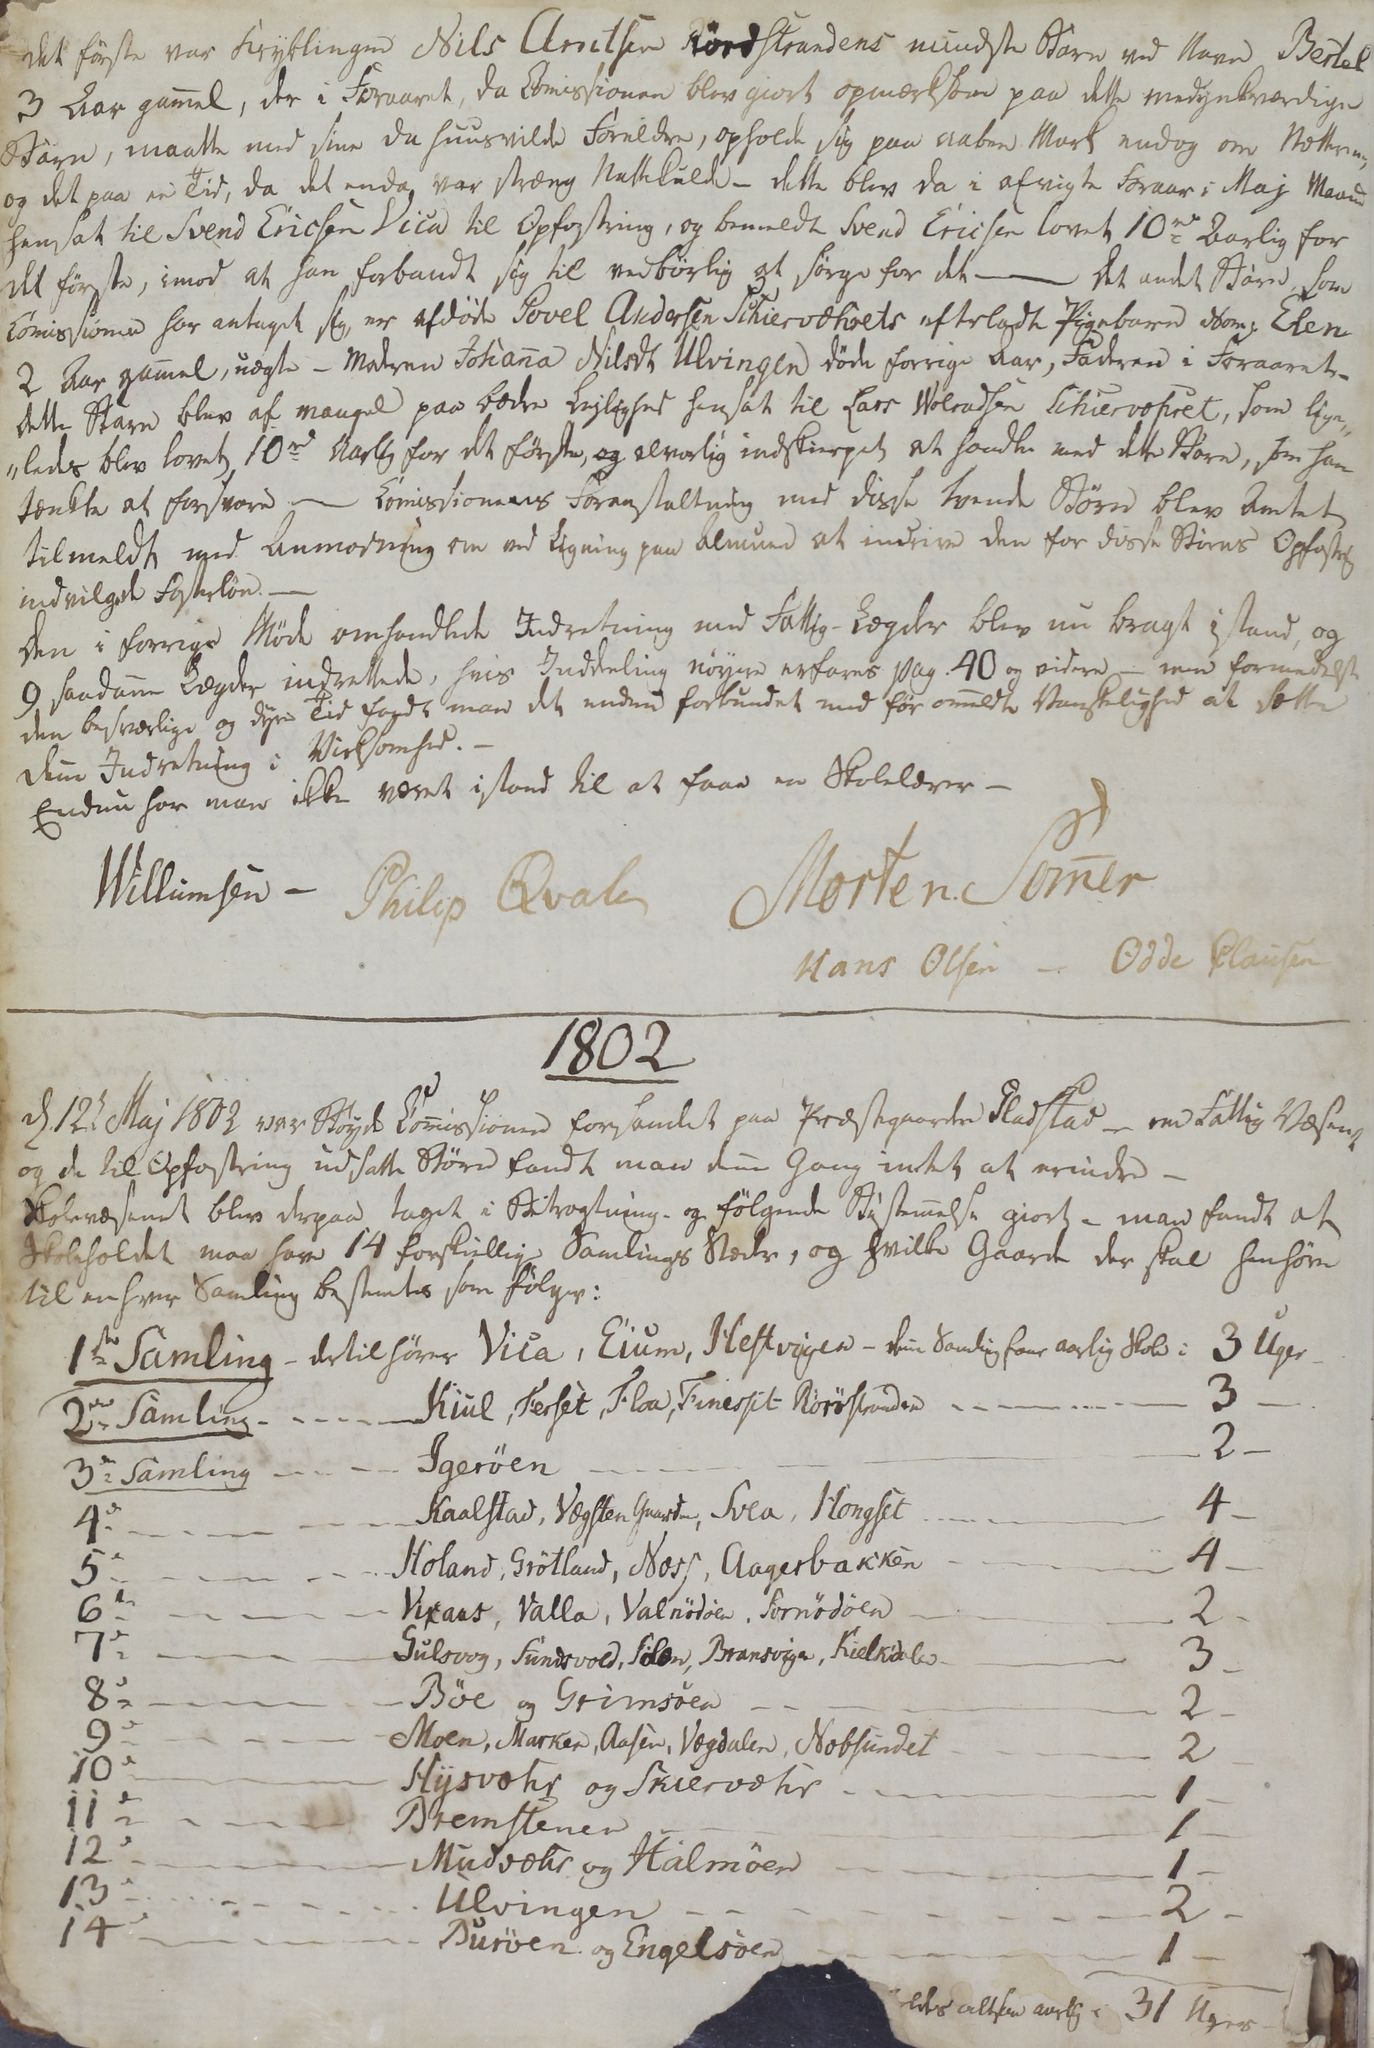 det förste var Kryblingen Nils Arntsen Rördstrandens mindste Barn ved Navn Bertel
3 Aar gam̄el, der i Foraaret, da Com̄issionen blev giort opmærksom paa dette medynkværdige
Barn, maatte med sine da huusvilde Forældre, opholde sig paa aaben Mark endog om Nætterne,
og det paa en Tid, da det enda var stræng Nattekulde - dette blev da i afvigte Foraar i Maj Maaned
hensat til Svend Ericsen Vica til Opfostring, og bemeldt Svend Ericsen lovet 10 rd Aarlig for
det förste, imod at han forbandt sig til vedbörlig at sörge for det — Det andet Barn, som
Com̄issionen har antaget sig, er afdöde Povel Andersen Schiervæhrets efterladte Pigebarn Nom: Elen
2 Aar gam̄el, uægte - Moderen Johanna Nilsdt Ulvingen döde forrige Aar, Faderen i Foraaret -
dette Barn blev af mangel paa bedre Leylighed hensat til Lars Wolradsen Schiervæhret, som lige„
„ledes blev lovet 10 rd Aarlig for det förste, og alvorlig indskierpet at handle med dette Barn, som han
tænkte at forsvare — Com̄issionens Foranstaltning med disse tvende Börn blev Amtet
tilmeldt med Anmodning om ved Ligning paa Almuen at inddrive den for disse Börns Opfostring
indvilgede Fosterlön. —
Den i forrige Möde omhandlede Indretning med Fattig-Lægder blev nu bragt i stand, og
9 saadanne Lægder indrettede, hvis Inddeling nöyere erfares pag. 40 og videre - men formedelst
den besværlige og dyre Tid fandt man det endnu forbundet med för om̄eldte Vanskelighed at sætte
den̄e Indretning i Virksomhed. -
Endnu har man ikke været i stand til at faae en Skolelærer -
Willumsen - Philip Qvale Morten Som̄er
Hans Olsen - Odde Clausen
1802
d 12t Maj 1802 var Böyde Com̄issionen forsamlet paa Præstegaarden Aladstad - om Fattig Væsenet
og de til Opfostring udsatte Börn fandt man den̄e Gang intet at erindre -
Skolevæsenet blev derpaa taget i Betragtning - og fölgende Bestem̄else giort - man fandt at
Skoleholdet maa have 14 forskiellige Samlings Stæder, og hvilke Gaarde der skal henhöre
til enhver Samling bestemtes som fölger:
1ste Samling - dertil hörer Vica, Eium, Hestvigen - den̄e Samling faaer aarlig Skole i 3 Uger -
2den Samling - Kiul, Ferset, Floa, Finesset Röröstranden 3 -
3de Samling Igeröen 2 -
4de Kaalstad, Vægsten Gaarde, Svea, Hongset 4 -
5te Holand, Grötland, Næss, Aagerbakken 4 -
6te Vixaas, Valla, Valnödöen, Sornödöen 2 -
7de Gulsvog, Sundsvold, Silen, Bransvigen, Kielkdalen 3 -
8de Böe og Grimsöen 2 -
9de Moen, Marken, Aasen, Vægdalen, Nobsundet 2 -
10de Hysvæhr og Skiervæhr 1 -
11te Bremstenen 1 -
12te Mudvæhr og Halmöen 1 -
13de Ulvingen 2 -
14de Buröen og Engelsöen 1 -
altsaa aarlig i 31 Uger -